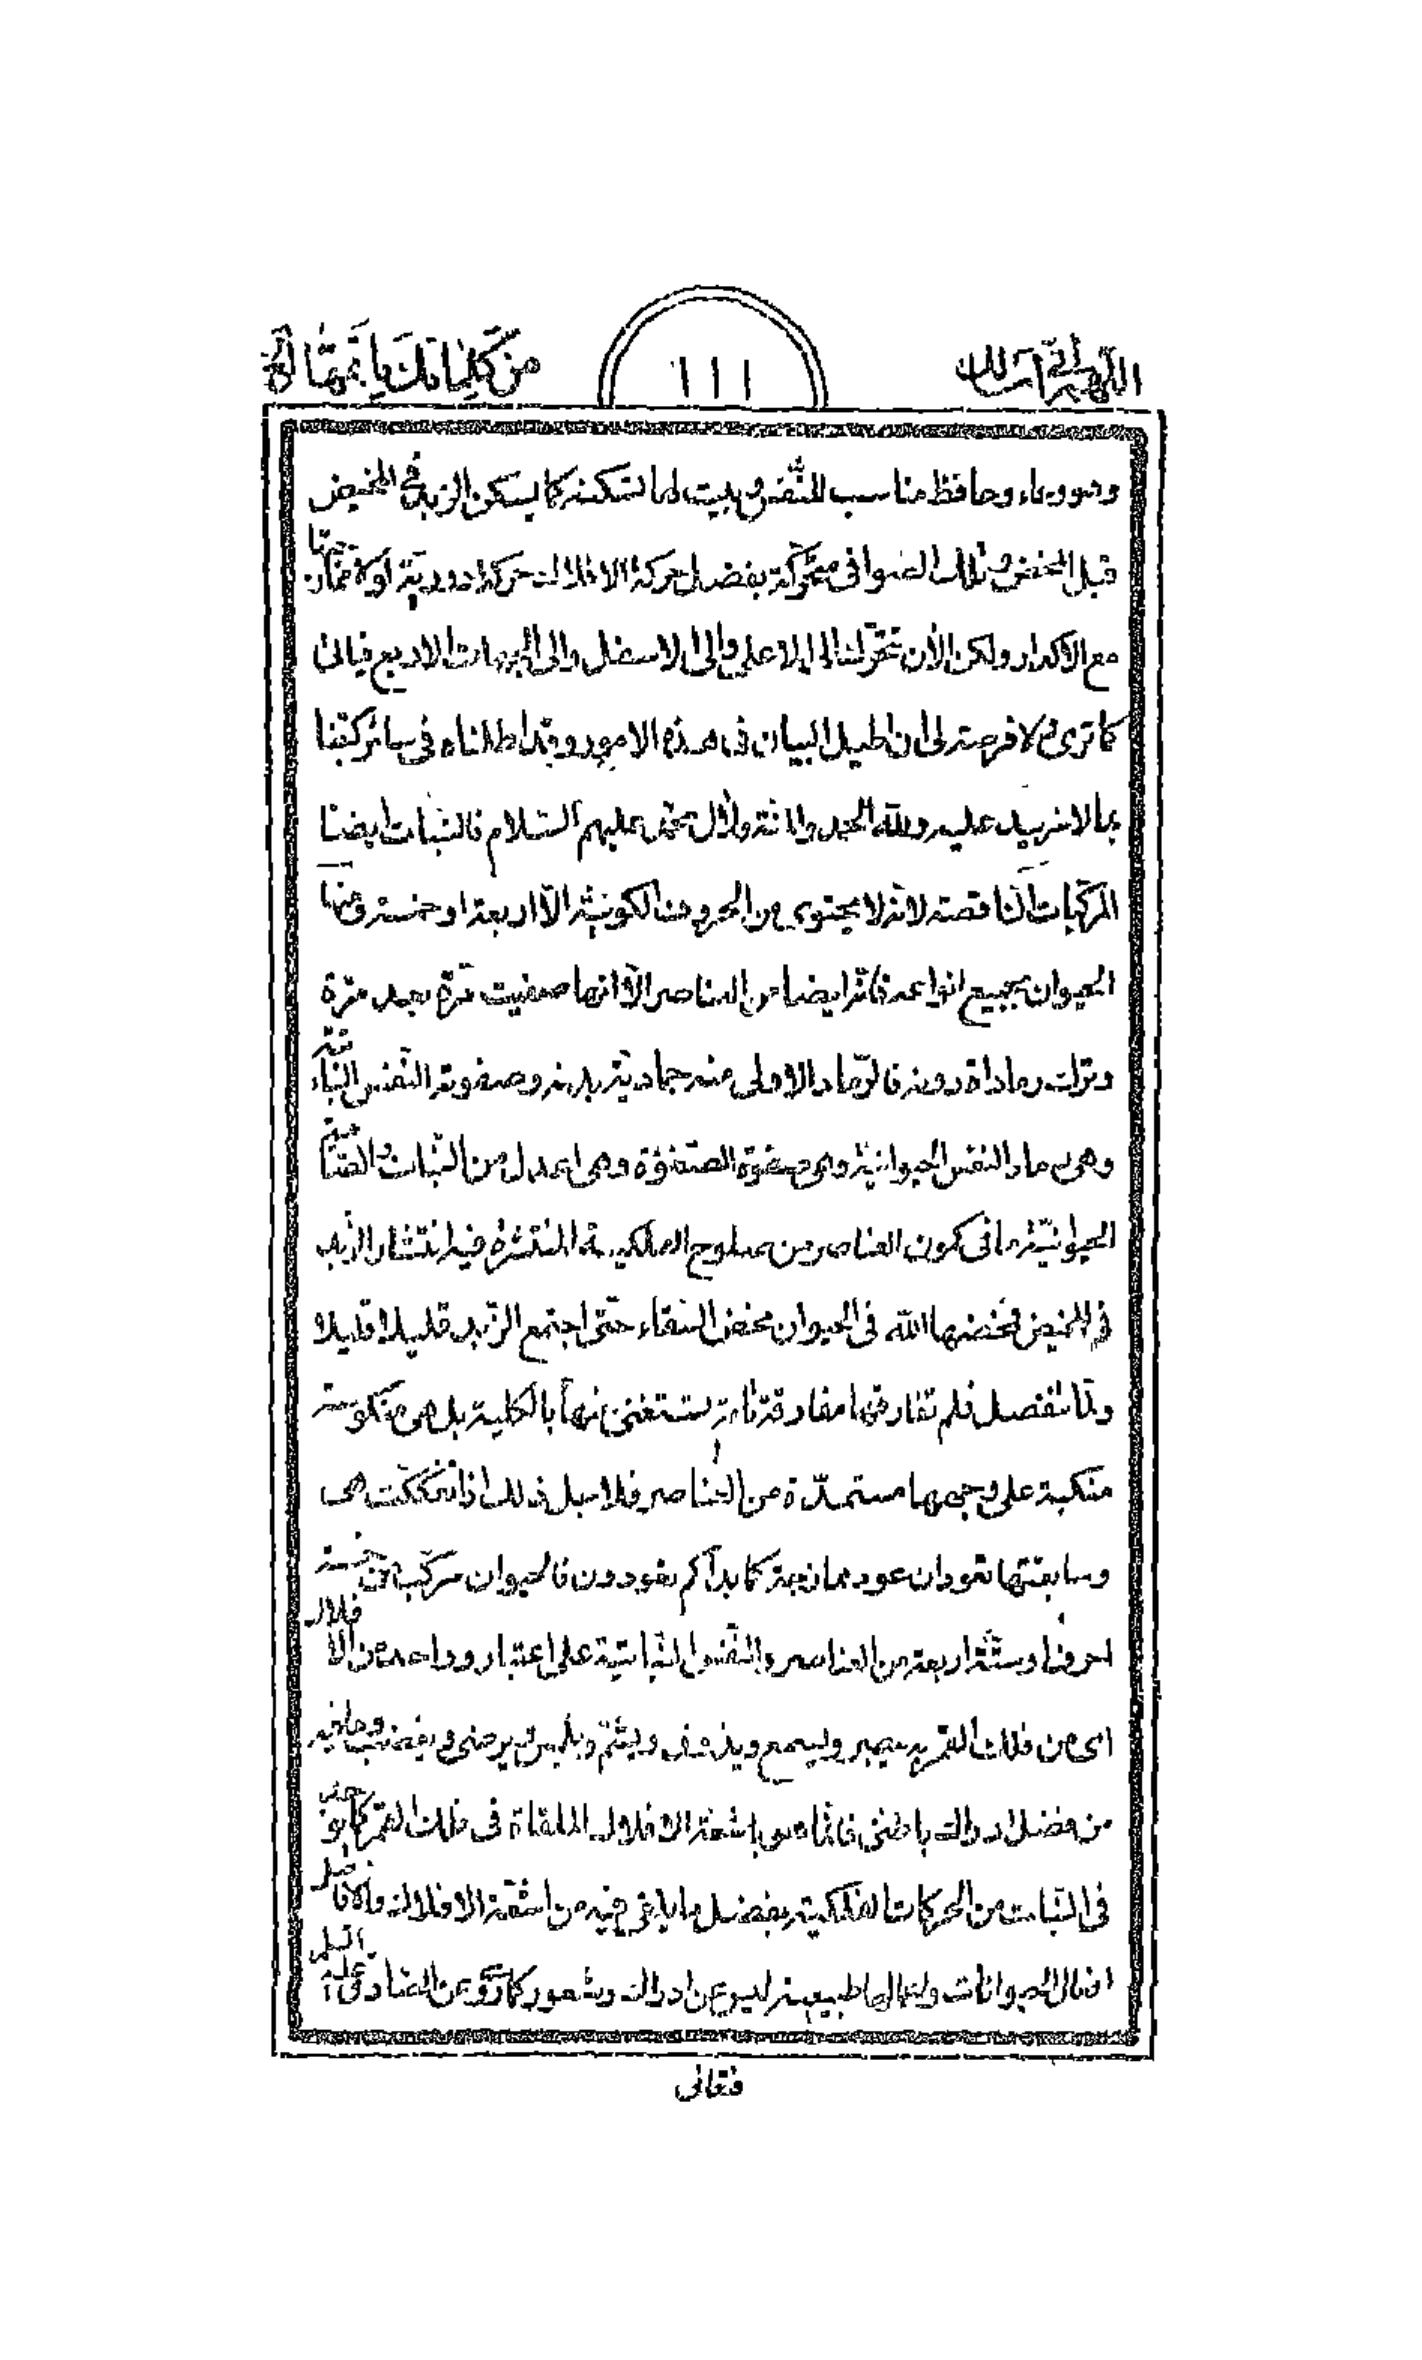 اللهم اني اسئلك
١١١
من كلماتك باتمها الخ
وهو وعاء وحافظ مناسب للنفس وبيت لها تسكنه كما يسكن الزبد في المخيض
قبل المخض وتلك الصوافى متحركة بفضل حركة الافلاك حركة دورية لولا ممازجتها
مع الاكدار ولكن الأن تحركت الى الاعلى والى الاسفل والى الجهات الاربع
كما ترى ولا فرصة لى ان اطيل البيان فى هذه الامور وقد اطلناه فى سائر كتبنا
بما لا مزيد عليه ولله الحمد والمنة ولآل محمد عليهم السلام فالنبات ايضا
المركبات الناقصة لانه لا يحتوى من الحروف الكونية الا اربعة او خمسة ومنها
الحيوان بجميع انواعه فانه ايضا من العناصر الا انها صفيت مرة بعد مرة
وترك رمادا دونه فالرماد الاولى منه جمادية بدنه وصفوته النفس النباتية
وهى رماد النفس الحيوانية وهى صفوة الصفوة وهى اعدل من النبات والصافية
الحيوانية ما فى كون العناصر من الفلكية المنتشرة فيه انتشار الزبد
فى المخيض فمخضها الله فى الحيوان مخض السقاء حتى اجتمع الزبد قليلا قليلا
ولما تنفصل فلم تفارقها مفارقة تامة تستغنى عنها بالكلية بل هى منكوسة
منكبة على وجهها مستمدة من العناصر فلاجل ذلك اذا تفككت هى
وسابقتها تعودان عود ممازجة كما بدأكم تعودون فالحيوان مركب من خمسة
احرف او ستة اربعة من العناصر والنفس النباتية على اعتبار وواحد من الافلاك
اى من فلك القمر به يبصر ويسمع ويذوق ويشم ويلمس ويرضى ويغضب وما فيه
من فضل ادراك باطنى فانما هى باشعة الافلاك الملقاة فى فلك القمر كما يوجد
فى النبات من الحركات الفلكية بفضل ما يلقى فيه من اشعة الافلاك والافاضل
افعال الحيوانات واعمالها طبيعية ليس عن ادراك وشعور كما روى عن الصادق عليه السلم
فتعالى